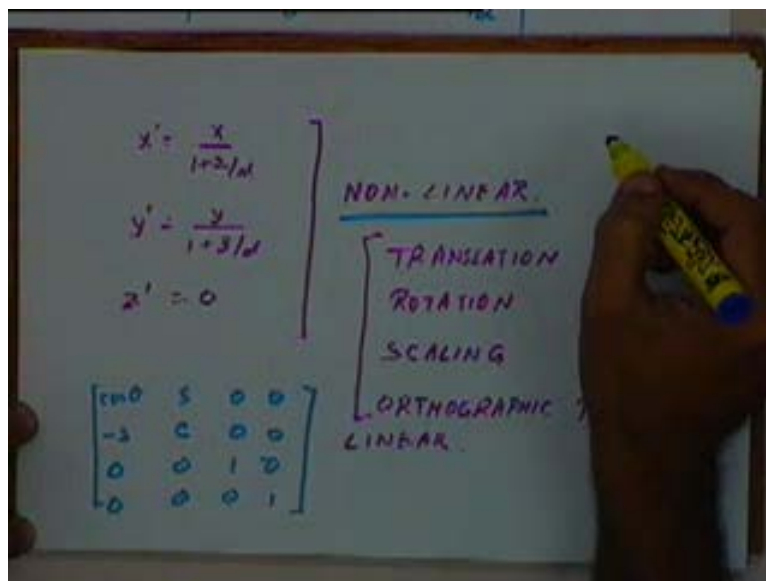 x' = x / 1+z/d
y' = y / 1+z/d
z' = 0
NON-LINEAR.
TRANSLATION
ROTATION
SCALING
ORTHOGRAPHIC
LINEAR.
cosθ S 0 0
-S C 0 0
0 0 1 0
0 0 0 1